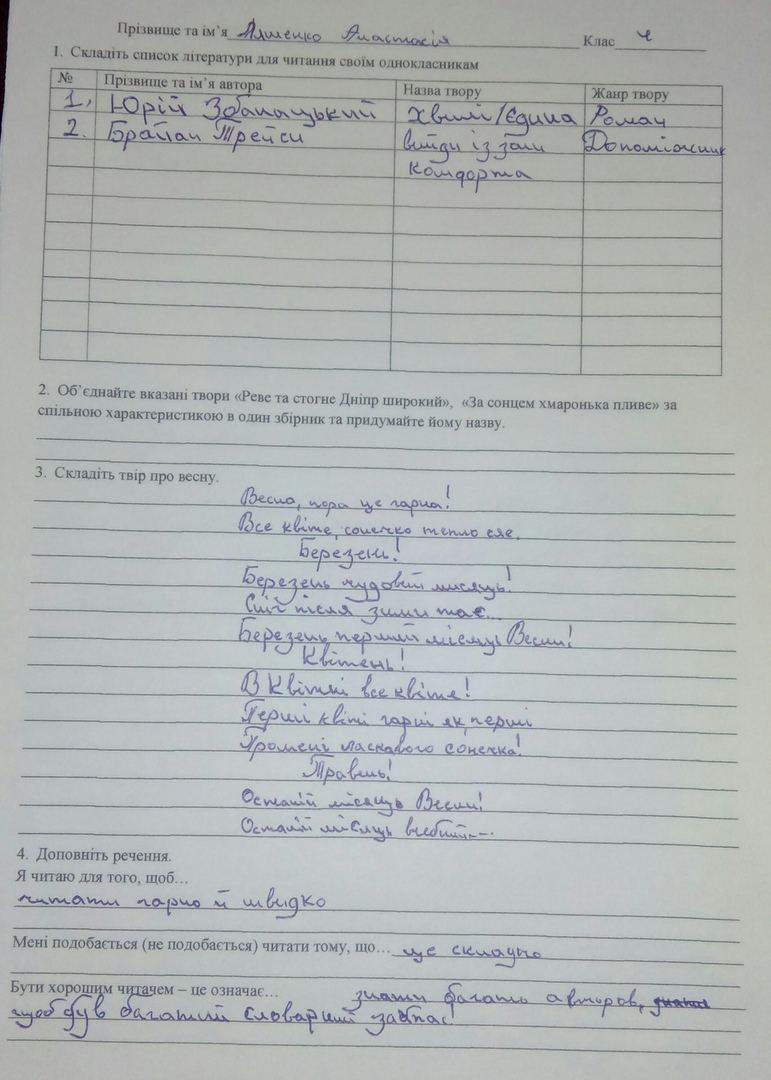 Прізвище та ім’я Ляшенко Анастасія Клас 4
1. Складіть список літератури для читання своїм однокласникам
№ Прізвище та ім’я автора Назва твору Жанр твору
1, Юрій Збанацький Хвилі/Єдина Роман
2. Брайан Трейси вийди із зони Допоміжник
комфорта
2. Об’єднайте вказані твори «Реве та стогне Дніпр широкий», «За сонцем хмаронька пливе» за
спільною характеристикою в один збірник та придумайте йому назву.
3. Складіть твір про весну.
Весна, пора це гарна!
Все квіте, сонечко тепло сяе.
Березень!
Березень чудовий мисяць!
Сніг після зими тає...
Березень перший місяць Весни!
Квітень!
В Квітні все квіте!
Перші квіти гарні як перші
Промені ласкавого сонечка!
Травень!
Останій місяць Весни!
Останій місяць
4. Доповніть речення.
Я читаю для того, щоб…
читати гарно й швидко
Мені подобається (не подобається) читати тому, що… це складно
Бути хорошим читачем – це означає… знати багато авторов,
щоб був багатий словарний запас!